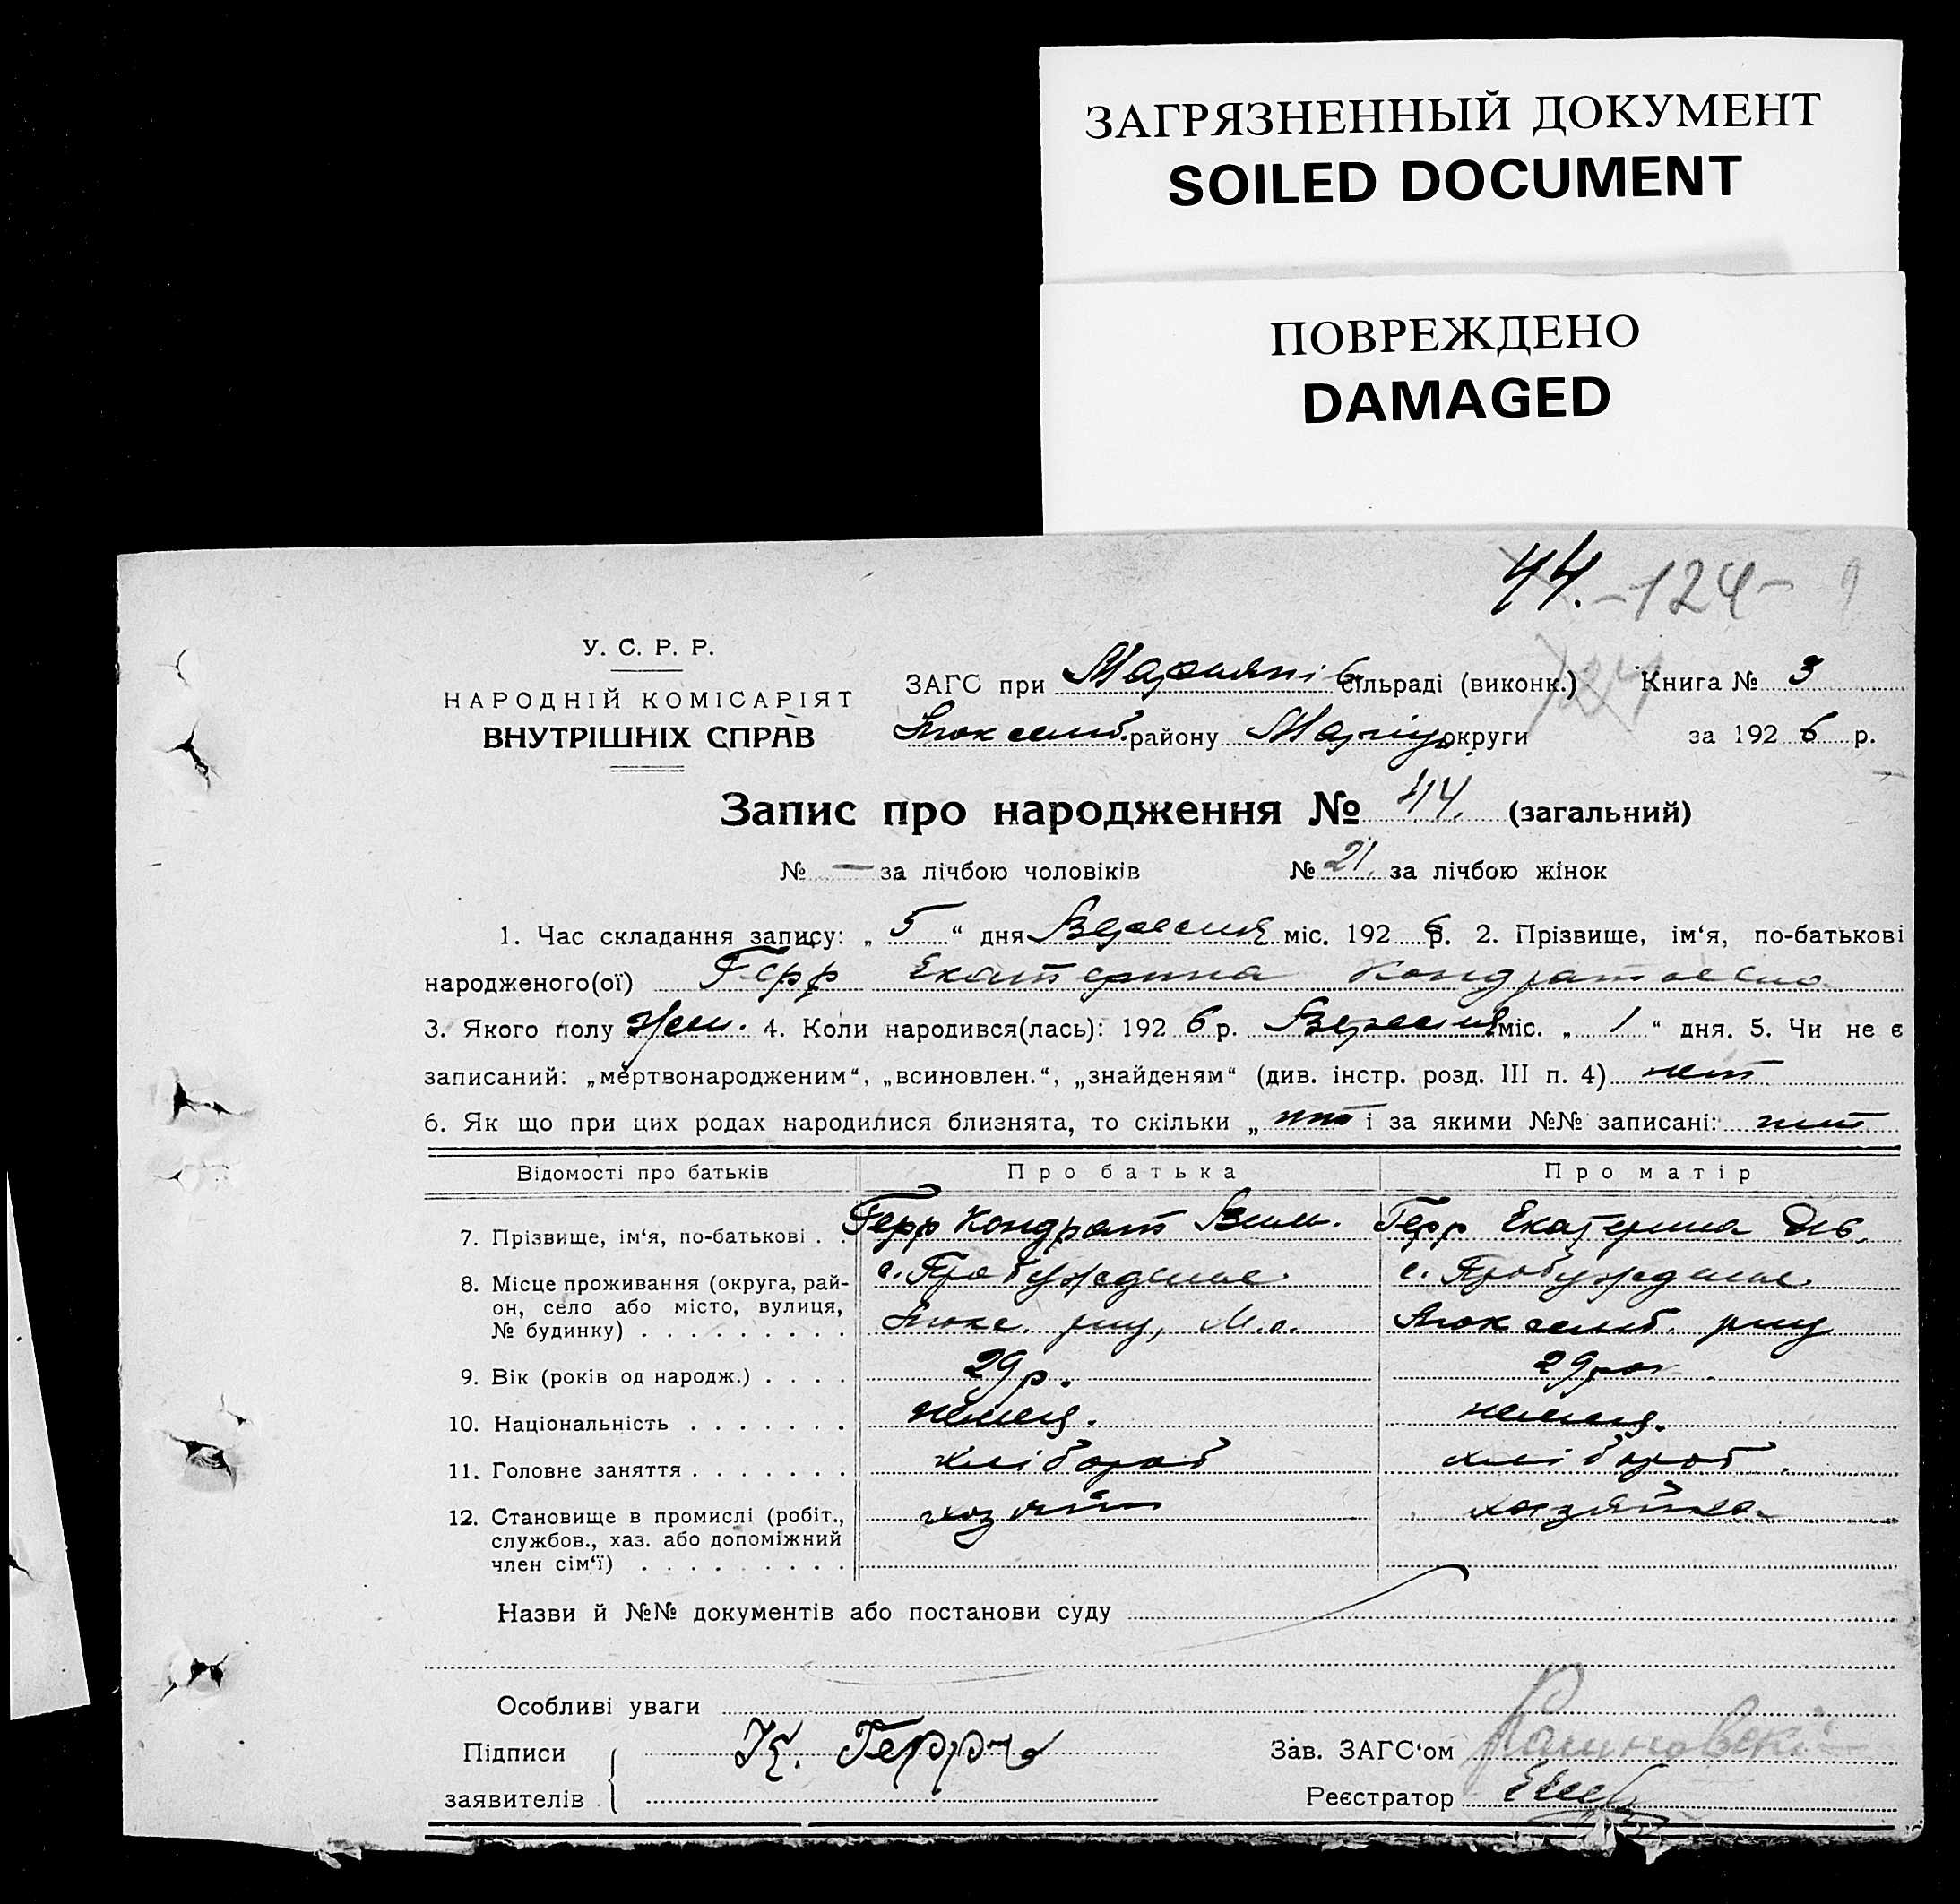 ЗАГРЯЗНЕННЫЙ ДОКУМЕНТ
SOILED DOCUMENT
ПОВРЕЖДЕНО
DAMAGED
44. -124-
У. С. Р. Р.
НАРОДНІЙ КОМІСАРІЯТ
ВНУТРІШНІХ СПРАВ
ЗАГС при Мариянів сільраді (виконк.) 124 Книга № 3
Люксемб. району Маріуп. округи за 1926 р.
Запис про народження № 44. (загальний)
№ — за лічбою чоловіків № 21. за лічбою жінок
1. Час складання запису: „ 5 “ дня Вересня міс. 1926 р. 2. Прізвище, ім‘я, по-батькові
народженого(ої) Герр Екатерина Кондратовна
3. Якого полу жен. 4. Коли народився(лась): 1926 р. Вересня міс. „ 1 “ дня. 5. Чи не є
записаний: „мертвонародженим“, „всиновлен.“, „знайденям“ (див. інстр. розд. III п. 4) нет
6. Як що при цих родах народилися близнята, то скільки „ нет і за якими №№ записані: нет
Відомості про батьків Про батька Про матір
7. Прізвище, ім‘я, по-батькові . . Герр Кондрат Герр Екатерина
8. Місце проживання (округа, рай- с. Пробуждение с. Пробуждение
он, село або місто, вулиця,
№ будинку) . . . . . . . . . Люкс. рну, М.о. Люксемб. рну
9. Вік (років од народж.) . . . . 29 р. 29 рок
10. Національність . . . . . . . немец. немец.
11. Головне заняття . . . . . . . хлібороб хлібороб
12. Становище в промислі (робіт., хозяїн хозяйка
службов., хаз. або допоміжний
член сім‘ї) . . . . . . . . .
Назви й №№ документів або постанови суду
Особливі уваги
Підписи К. Герр Зав. ЗАГС‘ом
заявителів Реєстратор